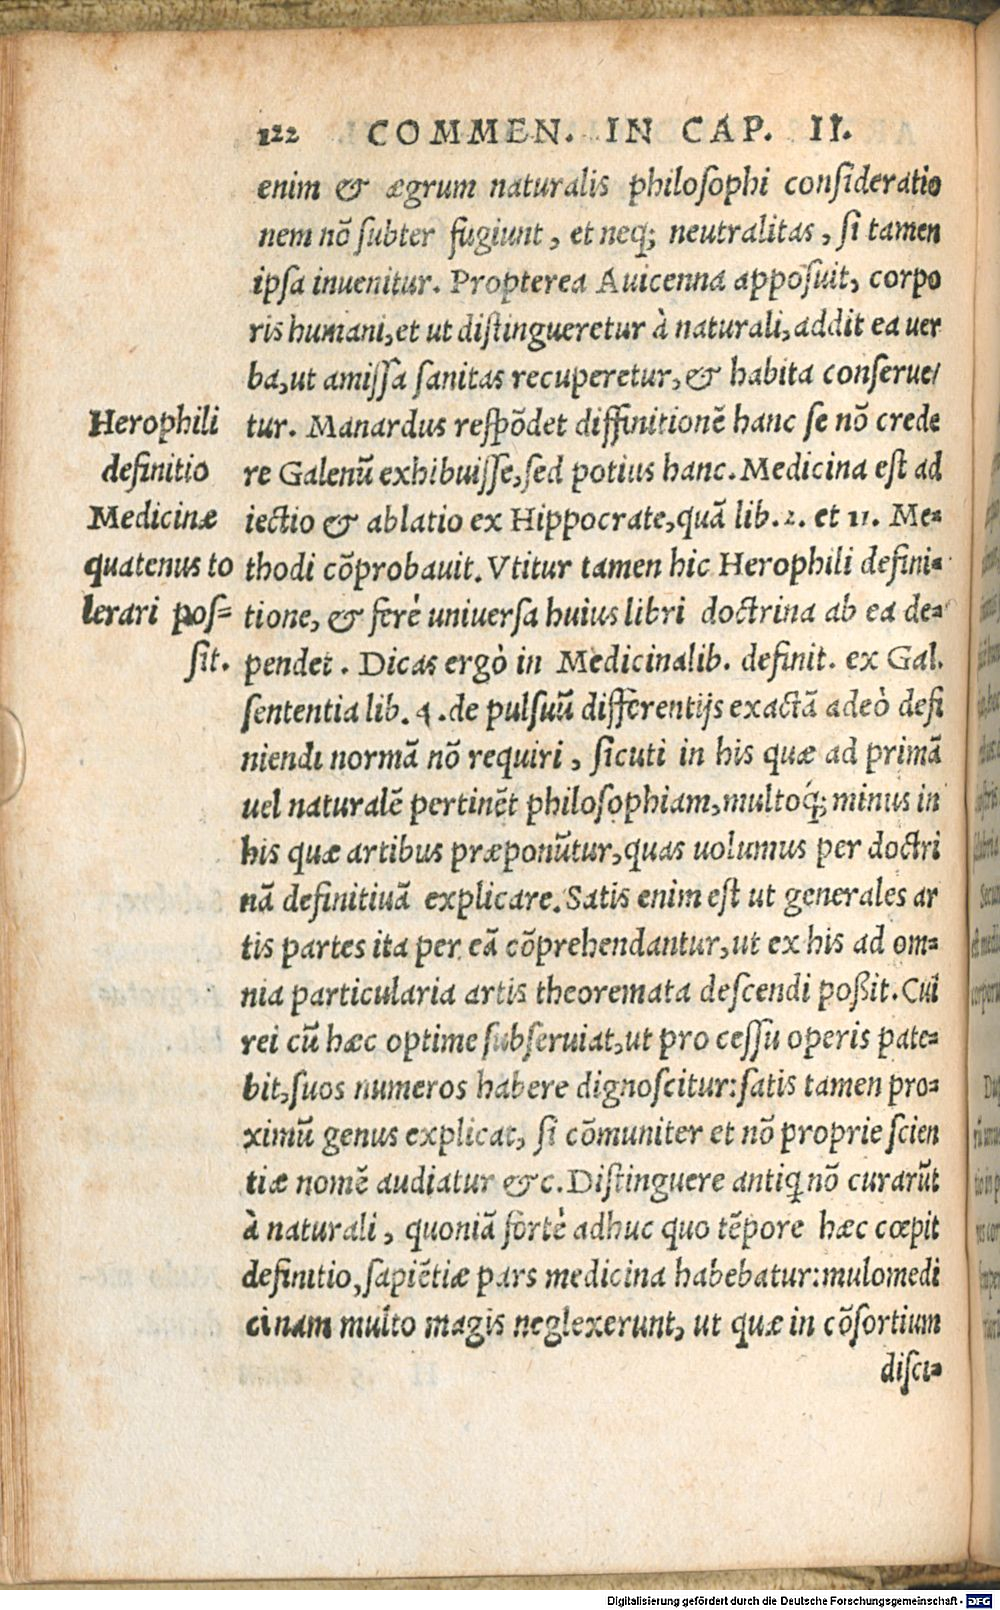 122 COMMEN. IN CAP. II.
enim & ægrum naturalis philosophi consideratio
nem nõ subter fugiunt, et neq; neutralitas, si tamen
ipsa inuenitur. Propterea Auicenna apposuit, corpo
ris humani, et ut distingueretur à naturali, addit ea uer
ba, ut amissa sanitas recuperetur, & habita conserue/
tur. Manardus respõdet diffinitionẽ hanc se nõ crede
re Galenũ exhibuisse, sed potius hanc. Medicina est ad
iectio & ablatio ex Hippocrate, quã lib. 2. et 11. Me=
thodi cõprobauit. Vtitur tamen hic Herophili defini=
tione, & ferè uniuersa huius libri doctrina ab ea de=
pendet. Dicas ergò in Medicinalib. definit. ex Gal.
sententia lib. 4. de pulsuũ differentijs exactã adeò defi
niendi normã nõ requiri, sicuti in his quæ ad primã
uel naturalẽ pertinẽt philosophiam, multoq́; minus in
his quæ artibus præponũtur, quas uolumus per doctri
nã definitiuã explicare. Satis enim est ut generales ar
tis partes ita per eã cõprehendantur, ut ex his ad om=
nia particularia artis theoremata descendi poßit. Cui
rei cũ hæc optime subseruiat, ut pro cessu operis pate=
bit, suos numeros habere dignoscitur: satis tamen pro=
ximũ genus explicat, si cõmuniter et nõ proprie scien
tiæ nomẽ audiatur &c. Distinguere antiq nõ curarũt
à naturali, quoniã fortè adhuc quo tẽpore hæc cœpit
definitio, sapiẽtiæ pars medicina habebatur: mulomedi
cinam multo magis neglexerunt, ut quæ in cõsortium
disci=
Herophili
definitio
Medicinæ
quatenus to
lerari pos=
sit.
Digitalisierung gefördert durch die Deutsche Forschungsgemeinschaft - DFG